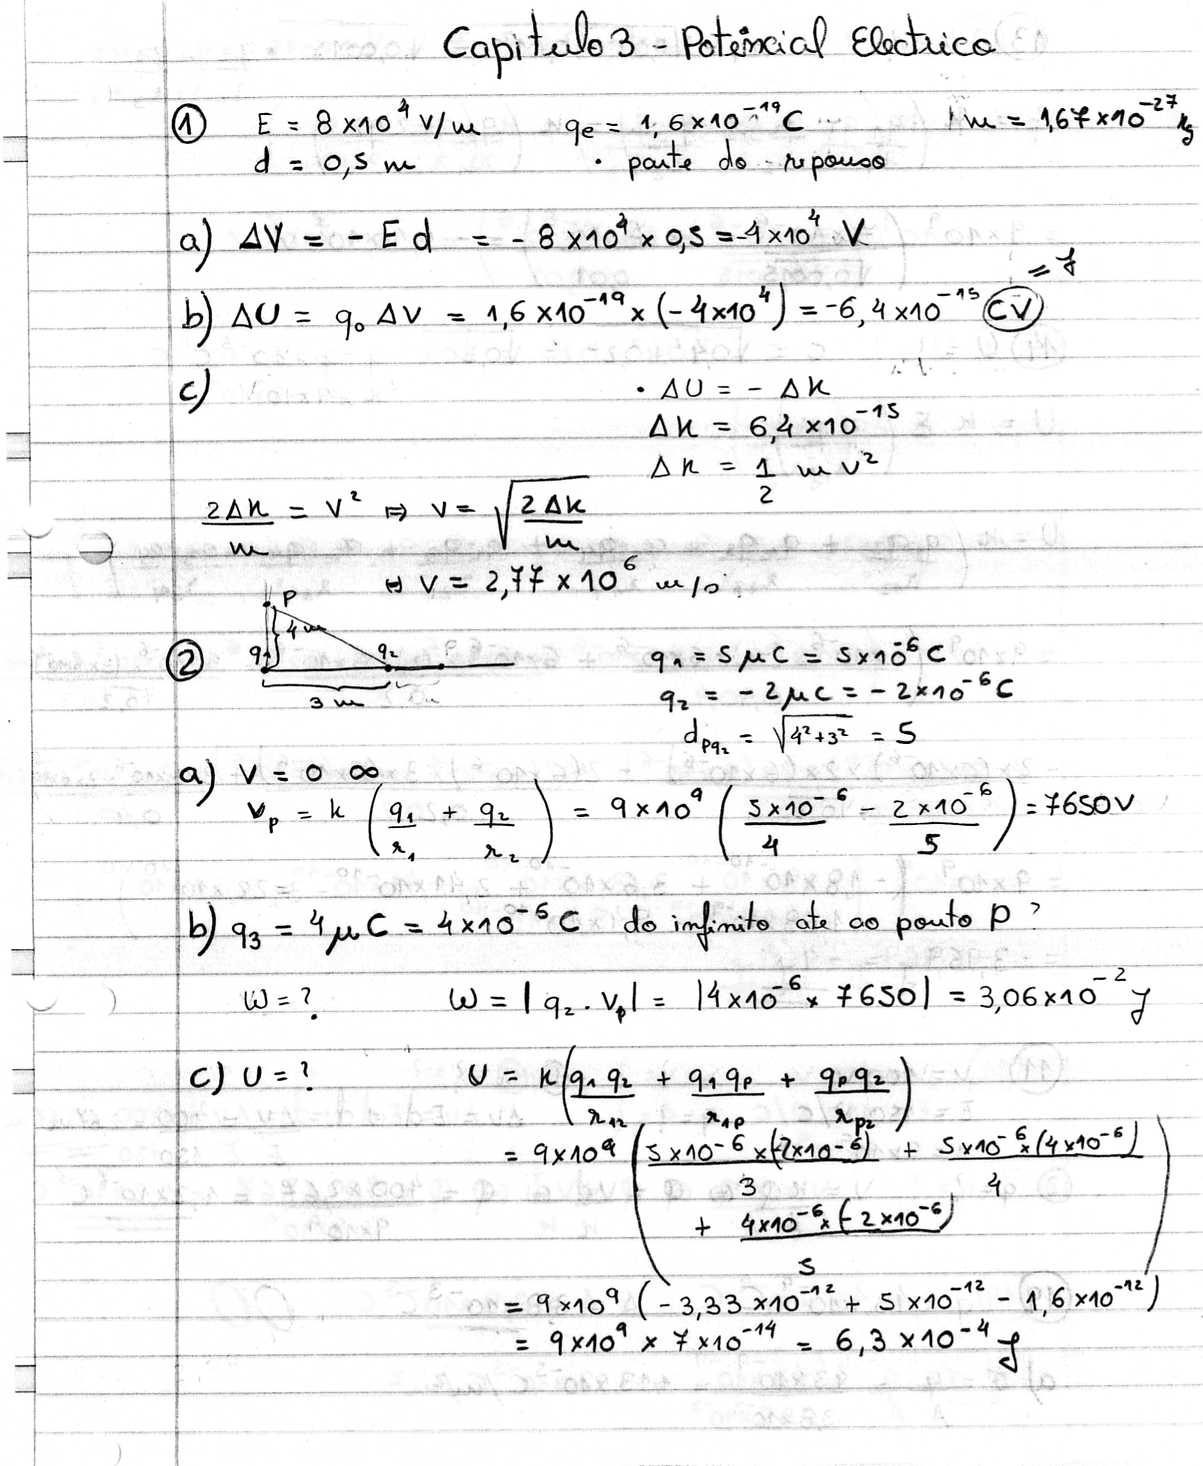 Capitulo 3 - Potencial Electrico
① E = 8×10⁴ V/m    qe = 1,6×10⁻¹⁹ C    m = 1,67×10⁻²⁷ kg
d = 0,5 m    · parte do repouso
a) ΔV = - E d = - 8×10⁴ × 0,5 = -4×10⁴ V
b) ΔU = q₀ ΔV = 1,6×10⁻¹⁹ × (-4×10⁴) = -6,4×10⁻¹⁵ CV = J
c) · ΔU = - ΔK
ΔK = 6,4×10⁻¹⁵
ΔK = 1/2 m v²
2ΔK/m = v² ⇔ v = √(2ΔK/m)
⇔ v = 2,77×10⁶ m/s
P
4 m
② q₁ q₂    q₁ = 5 μC = 5×10⁻⁶ C
3 m    q₂ = -2 μC = -2×10⁻⁶ C
d_Pq₂ = √(4²+3²) = 5
a) V = 0 ∞
V_p = k (q₁/r₁ + q₂/r₂) = 9×10⁹ (5×10⁻⁶/4 - 2×10⁻⁶/5) = 7650 V
b) q₃ = 4 μC = 4×10⁻⁶ C do infinito ate ao ponto P ?
W = ?    W = |q₂ . V_p| = |4×10⁻⁶ × 7650| = 3,06×10⁻² J
c) U = ?    U = K (q₁ q₂/r₁₂ + q₁ q_p/r₁p + q_p q₂/r_p₂)
= 9×10⁹ (5×10⁻⁶ × (-2×10⁻⁶)/3 + 5×10⁻⁶ × (4×10⁻⁶)/4
+ 4×10⁻⁶ × (-2×10⁻⁶)/5)
= 9×10⁹ (-3,33×10⁻¹² + 5×10⁻¹² - 1,6×10⁻¹²)
= 9×10⁹ × 7×10⁻¹⁴ = 6,3×10⁻⁴ J